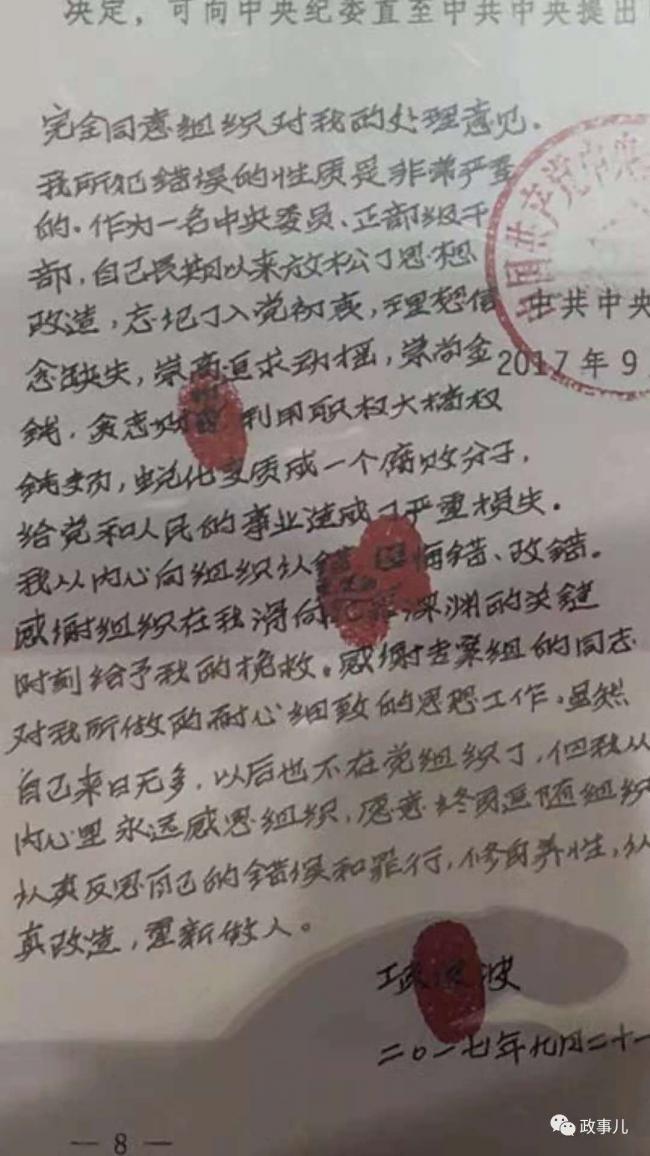 决定，可向中央纪委直至中共中央提出
完全同意组织对我的处理意见。
我所犯错误的性质是非常严重
的。作为一名中央委员、正部级干
部，自己长期以来放松了思想
改造，忘记了入党初衷，理想信
念缺失，崇高追求动摇，崇尚金
钱，贪恋财 利用职权大搞权
钱交易，蜕化变质成一个腐败分子，
给党和人民的事业造成了严重损失。
我从内心向组织认错 悔错、改错。
感谢组织在我滑向 深渊的关键
时刻给予我的挽救。感谢专案组的同志
对我所做的耐心细致的思想工作。虽然
自己来日无多，以后也不在党组织了，但我从
内心里永远感恩组织，愿意终身追随组织
认真反思自己的错误和罪行，修身养性，认
真改造，重新做人。
中国共产党中央
中共中央
2017年9
项 波
二〇一七年九月二十一
— 8 —
政事儿